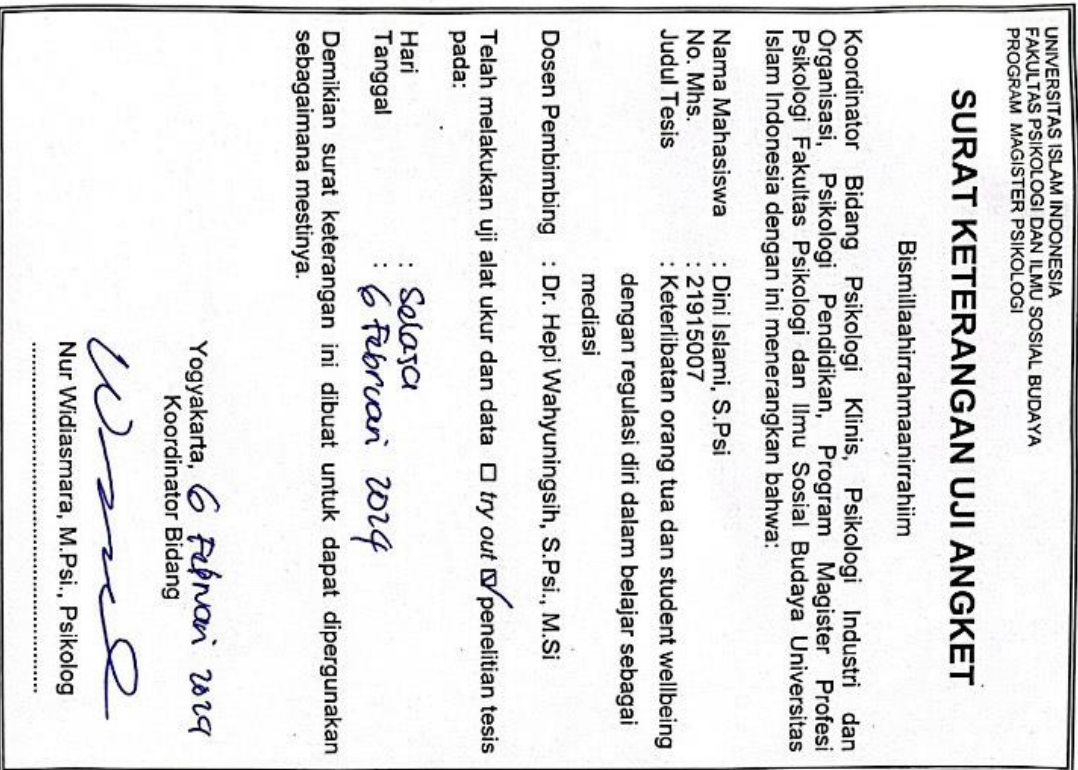 UNIVERSITAS ISLAM INDONESIA
FAKULTAS PSIKOLOGI DAN ILMU SOSIAL BUDAYA
PROGRAM MAGISTER PSIKOLOGI
SURAT KETERANGAN UJI ANGKET
Bismillaahirrahmaanirrahiim
Koordinator Bidang Psikologi Klinis, Psikologi Industri dan
Organisasi, Psikologi Pendidikan, Program Magister Profesi
Psikologi Fakultas Psikologi dan Ilmu Sosial Budaya Universitas
Islam Indonesia dengan ini menerangkan bahwa:
Nama Mahasiswa : Dini Islami, S.Psi
No. Mhs. : 21915007
Judul Tesis : Keterlibatan orang tua dan student wellbeing
dengan regulasi diri dalam belajar sebagai
mediasi
Dosen Pembimbing : Dr. Hepi Wahyuningsih, S.Psi., M.Si
Telah melakukan uji alat ukur dan data ☐ try out ☑ penelitian tesis
pada:
Hari : Selasa
Tanggal : 6 Februari 2024
Demikian surat keterangan ini dibuat untuk dapat dipergunakan
sebagaimana mestinya.
Yogyakarta, 6 Februari 2024
Koordinator Bidang
Nur Widiasmara, M.Psi., Psikolog